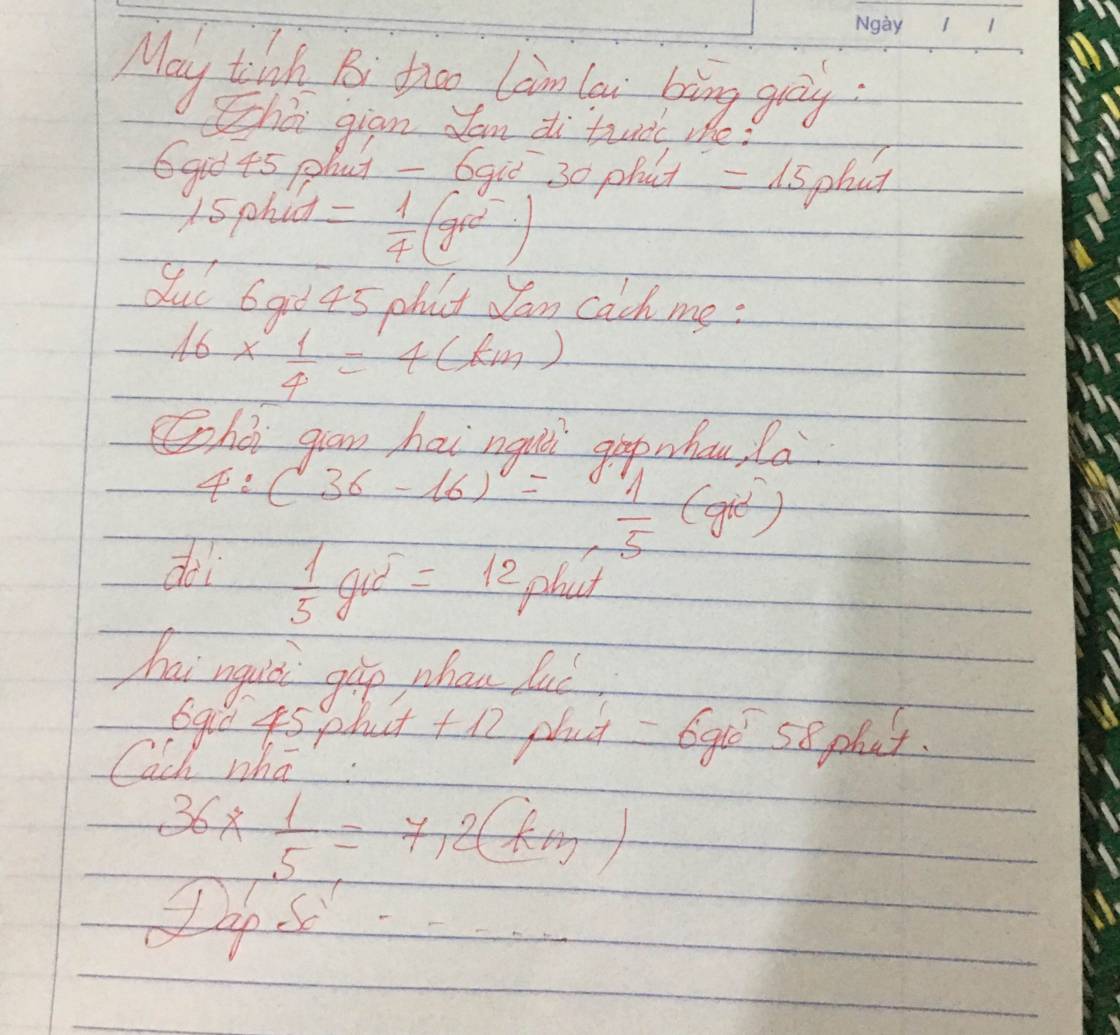 Ngày / /
Máy tính Bị treo làm lại bằng giấy:
Thời gian Lan đi trước mẹ:
6 giờ 45 phút - 6 giờ 30 phút = 15 phút
15 phút = 1/4 (giờ)
Lúc 6 giờ 45 phút Lan cách mẹ:
16 × 1/4 = 4 (km)
Thời gian hai người gặp nhau là:
4 : (36 - 16) = 1/5 (giờ)
đổi 1/5 giờ = 12 phút
hai người gặp nhau lúc:
6 giờ 45 phút + 12 phút = 6 giờ 58 phút.
Cách nhà :
36 × 1/5 = 7,2 (km)
Đáp Số - - - - - -